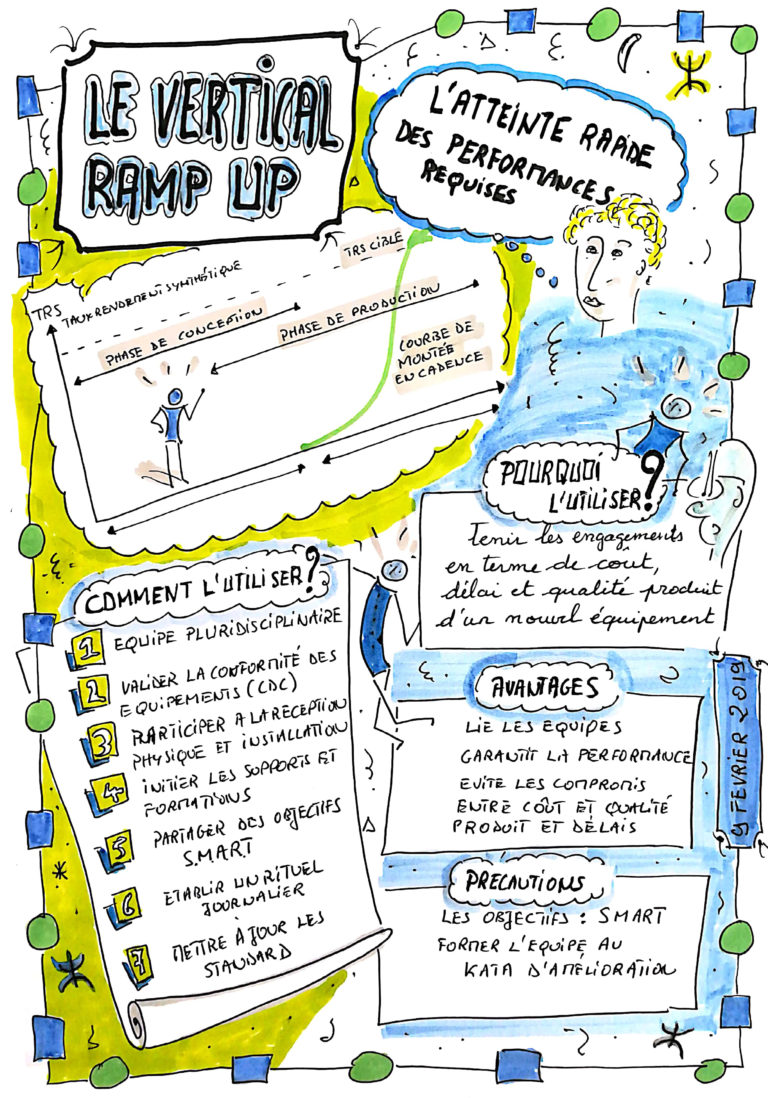 LE VERTICAL
RAMP UP
L'ATTEINTE RAPIDE
DES PERFORMANCES
REQUISES
TRS
TAUX RENDEMENT SYNTHÉTIQUE
TRS CIBLE
PHASE DE CONCEPTION
PHASE DE PRODUCTION
COURBE DE
MONTÉE
EN CADENCE
POURQUOI
L'UTILISER?
Tenir les engagements
en terme de coût,
délai et qualité produit
d'un nouvl équipement
COMMENT L'UTILISER?
1 EQUIPE PLURIDISCIPLINAIRE
2 VALIDER LA CONFORMITÉ DES
EQUIPEMENTS (CDC)
3 PARTICIPER A LA RECEPTION
PHYSIQUE ET INSTALLATION
4 INITIER LES SUPPORTS ET
FORMATIONS
5 PARTAGER DES OBJECTIFS
S.M.A.R.T
6 ETABLIR UN RITUEL
JOURNALIER
7 METTRE À JOUR LES
STANDARD
AVANTAGES
LIE LES EQUIPES
GARANTIT LA PERFORMANCE
EVITE LES COMPROMIS
ENTRE COÛT ET QUALITÉ
PRODUIT ET DÉLAIS
9 FEVRIER 2019
PRÉCAUTIONS
LES OBJECTIFS : SMART
FORMER L'EQUIPE AU
KATA D'AMÉLIORATION